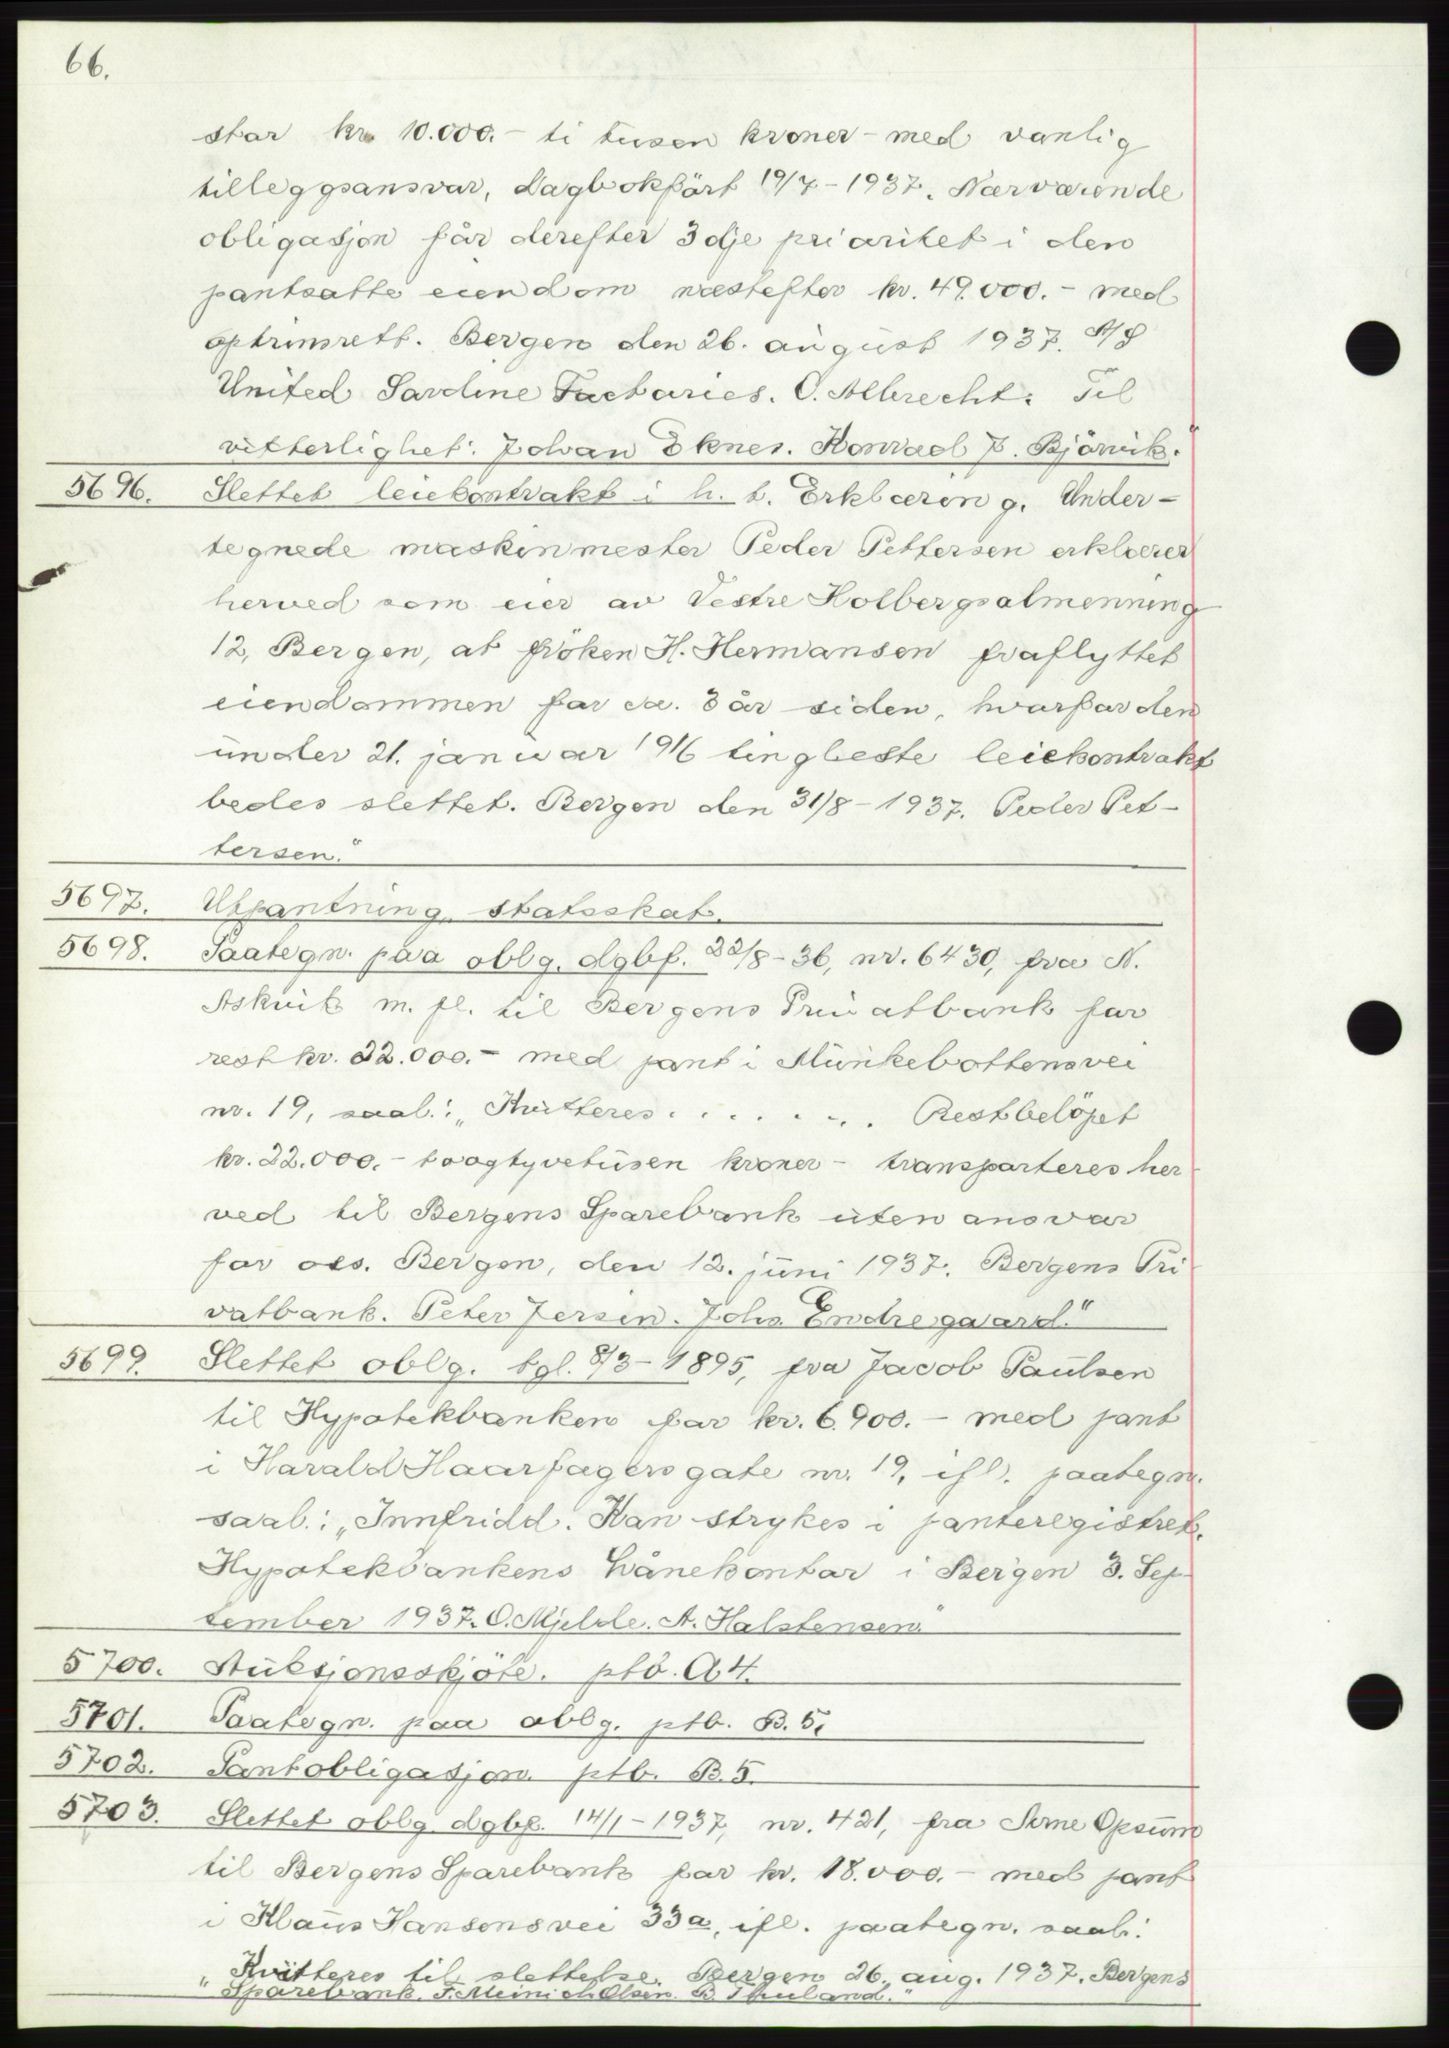 66.
stor kr. 10.000.- ti tusen kroner - med vanlig
tilleggsansvar, dagbokført 19/7-1937. Nærværende
obligasjon får derefter 3dje prioritet i den
pantsatte eiendom næstefter kr. 49.000.- med
optrinsrett. Bergen den 26. august 1937. A/S
United Sardine Factories. C. Albrecht. Til
vitterlighet: Johan Eknes. Konrad J. Bjørvik."
5696. Slettet leiekontrakt i h. t. Erklæring. Under-
tegnede maskinmester Peder Pettersen erklærer
herved som eier av Vestre Holbergsalmenning
12, Bergen, at frøken H. Hermansen fraflyttet
eiendommen for ca. 3 år siden, hvorfor den
under 21. januar 1916 tinglæste leiekontrakt
bedes slettet. Bergen den 31/8-1937. Peder Pet-
tersen."
5697. Utpantning, statsskat.
5698. Paategn. paa oblg. dgbf. 22/8-36, nr. 6430, fra N.
Askvik m. fl. til Bergens Privatbank for
rest kr. 22.000.- med pant i Munkebottensvei
nr. 19, saal.: „Kvitteres . . . . . . . Restbeløpet
kr. 22.000.- toogtyvetusen kroner - transporteres her-
ved til Bergens Sparebank uten ansvar
for oss. Bergen, den 12. juni 1937. Bergens Pri-
vatbank. Peter Jersin. Johs. Endregaard."
5699. Slettet oblg. tgl. 8/3-1895, fra Jacob Paulsen
til Hypotekbanken for kr. 6.900.- med pant
i Harald Haarfagersgate nr. 19, ifl. paategn.
saal.: „Innfridd. Kan strykes i panteregistret.
Hypotekbankens Lånekontor i Bergen 3. Sep-
tember 1937. O. Mjelde. A. Halstensen."
5700. Auksjonsskjøte. ptb. A 4.
5701. Paategn. paa oblg. ptb. B. 5.
5702. Pantobligasjon. ptb. B. 5.
5703. Slettet oblg. dgbf. 14/1-1937, nr. 421, fra Arne Opsum
til Bergens Sparebank for kr. 18.000.- med pant
i Klaus Hansensvei 33a, ifl. paategn. saal.:
„Kvitteres til slettelse. Bergen 26. aug. 1937. Bergens
Sparebank. F. Meinich Olsen. B. Thuland."